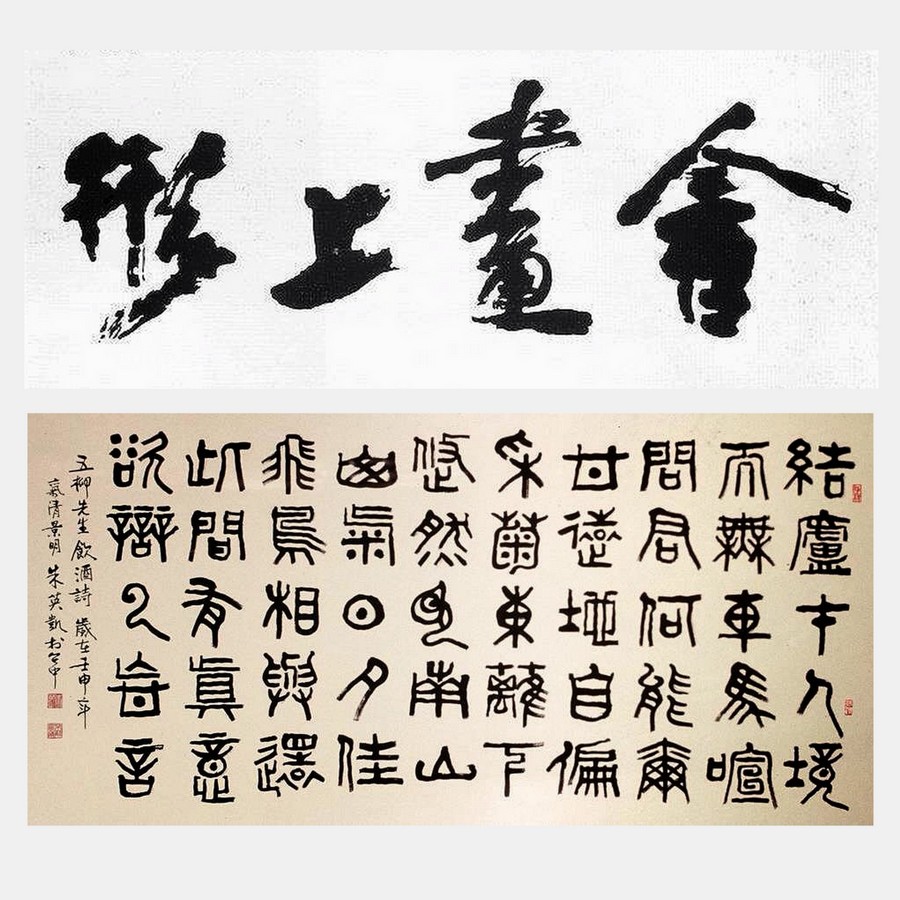 形上畫會
結廬在人境
而無車馬喧
問君何能爾
心遠地自偏
采菊東籬下
悠然見南山
山氣日夕佳
飛鳥相與還
此間有眞意
欲辯已忘言
五柳先生飲酒詩 歲在壬申年
氣清景明 朱英凱於台中